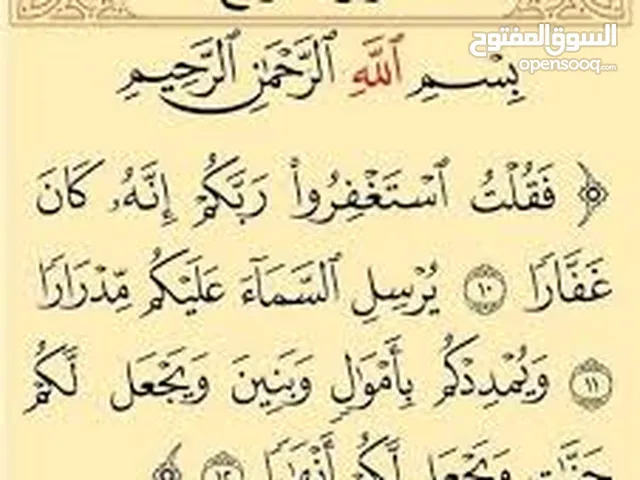 السوق المفتوح
opensooq.com
بِسْمِ ٱللَّهِ ٱلرَّحْمَٰنِ ٱلرَّحِيمِ
﴿ فَقُلْتُ ٱسْتَغْفِرُوا۟ رَبَّكُمْ إِنَّهُۥ كَانَ
غَفَّارًا ١٠ يُرْسِلِ ٱلسَّمَآءَ عَلَيْكُم مِّدْرَارًا
١١ وَيُمْدِدْكُم بِأَمْوَٰلٍ وَبَنِينَ وَيَجْعَل لَّكُمْ
جَنَّٰتٍ وَيَجْعَل لَّكُمْ أَنْهَٰرًا ١٢ ﴾